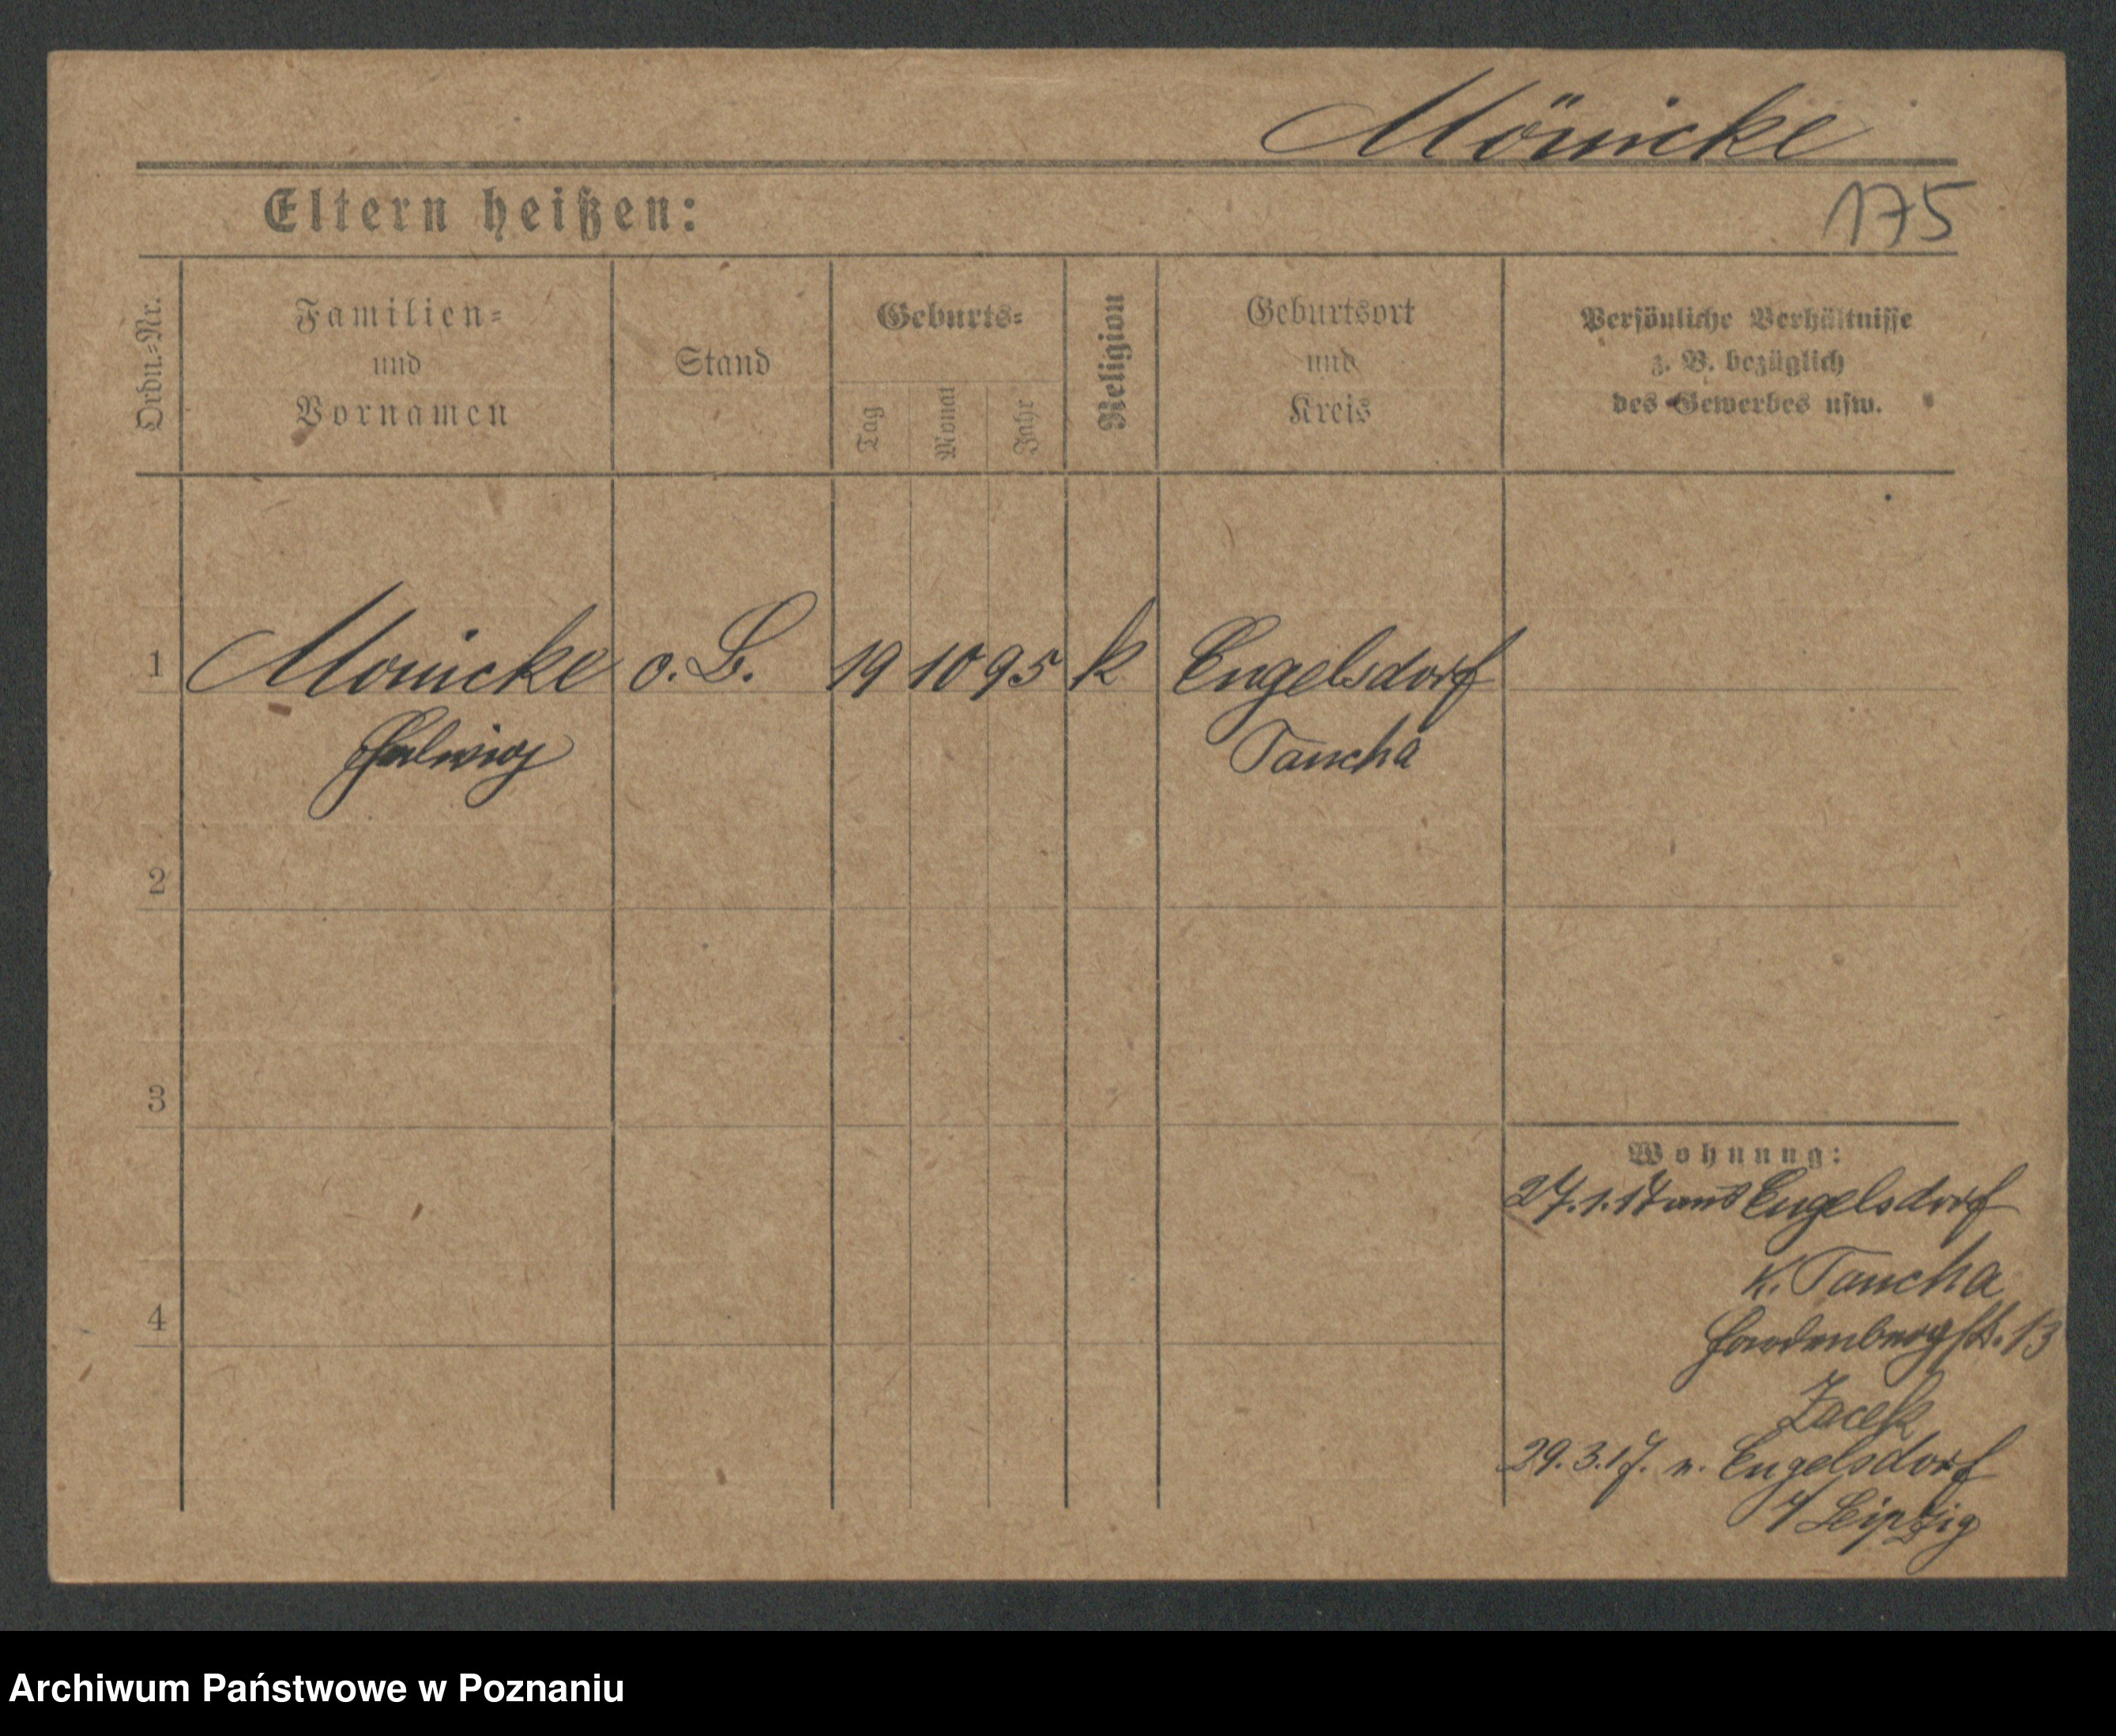 Mönicke
Eltern heißen:
175
Ordn.-Nr.
Familien-
und
Vornamen
Stand
Geburts-
Tag
Monat
Jahr
Religion
Geburtsort
und
Kreis
Persönliche Verhältnisse
z. B. bezüglich
des Gewerbes usw.
1 Monicke o. B. 19 10 95 k Engelsdorf
Hedwig Taucha
2
3
4
Wohnung:
27.1.17 aus Engelsdorf
K. Taucha
Hardenbergstr. 13
Zacek
29.3.17. n. Engelsdorf
Leipzig
Archiwum Państwowe w Poznaniu